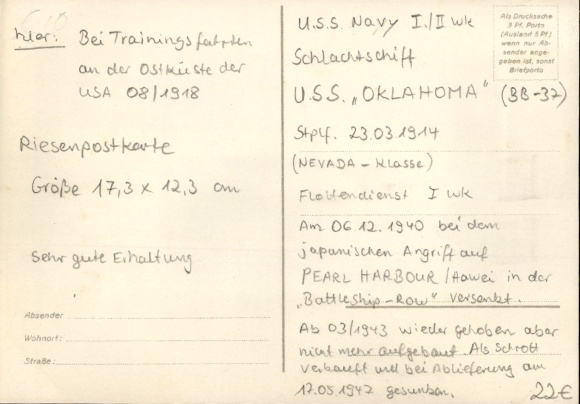 hier: Bei Trainingsfahrten
an der Ostküste der
USA 08/1918
Riesenpostkarte
Größe 17,3 x 12,3 cm
Sehr gute Erhaltung
Absender
Wohnort:
Straße:
U.S.S. Navy I./II WK
Schlachtschiff
U.S.S. „OKLAHOMA" (BB-37)
Stplf. 23.03.1914
(NEVADA - Klasse)
Flottendienst I WK
Am 06.12.1940 bei dem
japanischen Angriff auf
PEARL HARBOUR/Hawei in der
„Battleship-Row" versenkt.
Ab 03/1943 wieder gehoben aber
nicht mehr aufgebaut. Als Schrott
verkauft und bei Ablieferung am
17.05.1947 gesunken.
22€
Als Drucksache
3 Pf. Porto
(Ausland 5 Pf)
wenn nur Ab-
sender ange-
geben ist, sonst
Briefporto